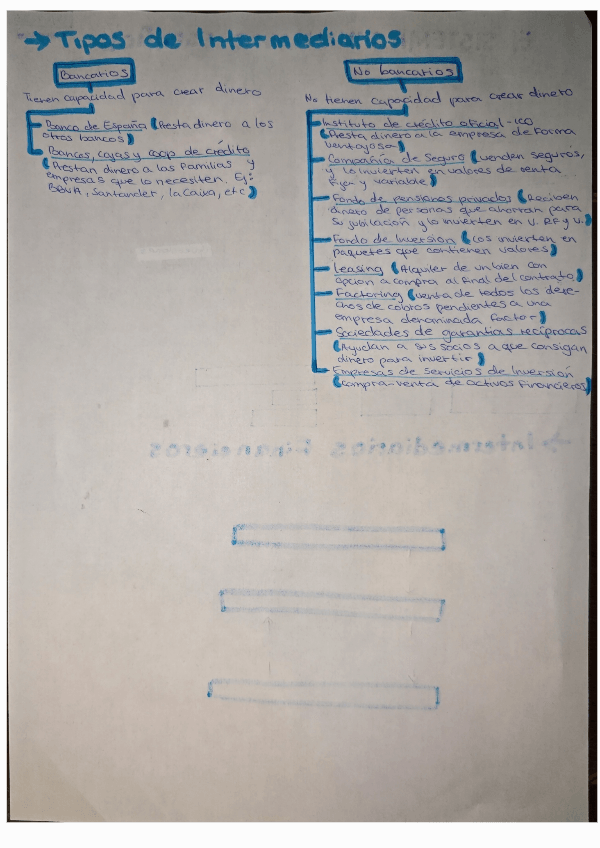 → Tipos de Intermediarios
Bancarios
Tienen capacidad para crear dinero
Banco de España (Presta dinero a los
otros bancos)
Bancos, cajas y coop de crédito
(Prestan dinero a las familias y
empresas que lo necesiten. Ej:
BBVA, Santander, la Caixa, etc)
No bancarios
No tienen capacidad para crear dinero
Instituto de crédito oficial - ICO
(Presta dinero a la empresa de forma
ventajosa)
Compañía de Seguro (venden seguros,
y lo invierten en valores de renta
fija y variable)
Fondo de pensiones privados (Reciben
dinero de personas que ahorran para
su jubilación y lo invierten en V. RF y V.)
Fondo de Inversión (Los invierten en
paquetes que contienen valores)
Leasing (Alquiler de un bien con
opcion a compra al final del contrato)
Factoring (venta de todos los dere-
chos de cobros pendientes a una
empresa denominada factor)
Sociedades de garantías recíprocas
(Ayudan a sus socios a que consigan
dinero para invertir)
Empresas de Servicios de Inversión
(Compra-venta de activos financieros)
→ Intermediarios Financieros